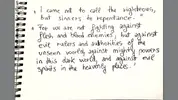 " I come not to call the righteous,
but sinners to repentance. "
" For we are not fighting against
flesh and blood enemies, but against
evil rulers and authorities of the
unseen world, against mighty powers
in this dark world, and against evil
spirits in the heavenly places.